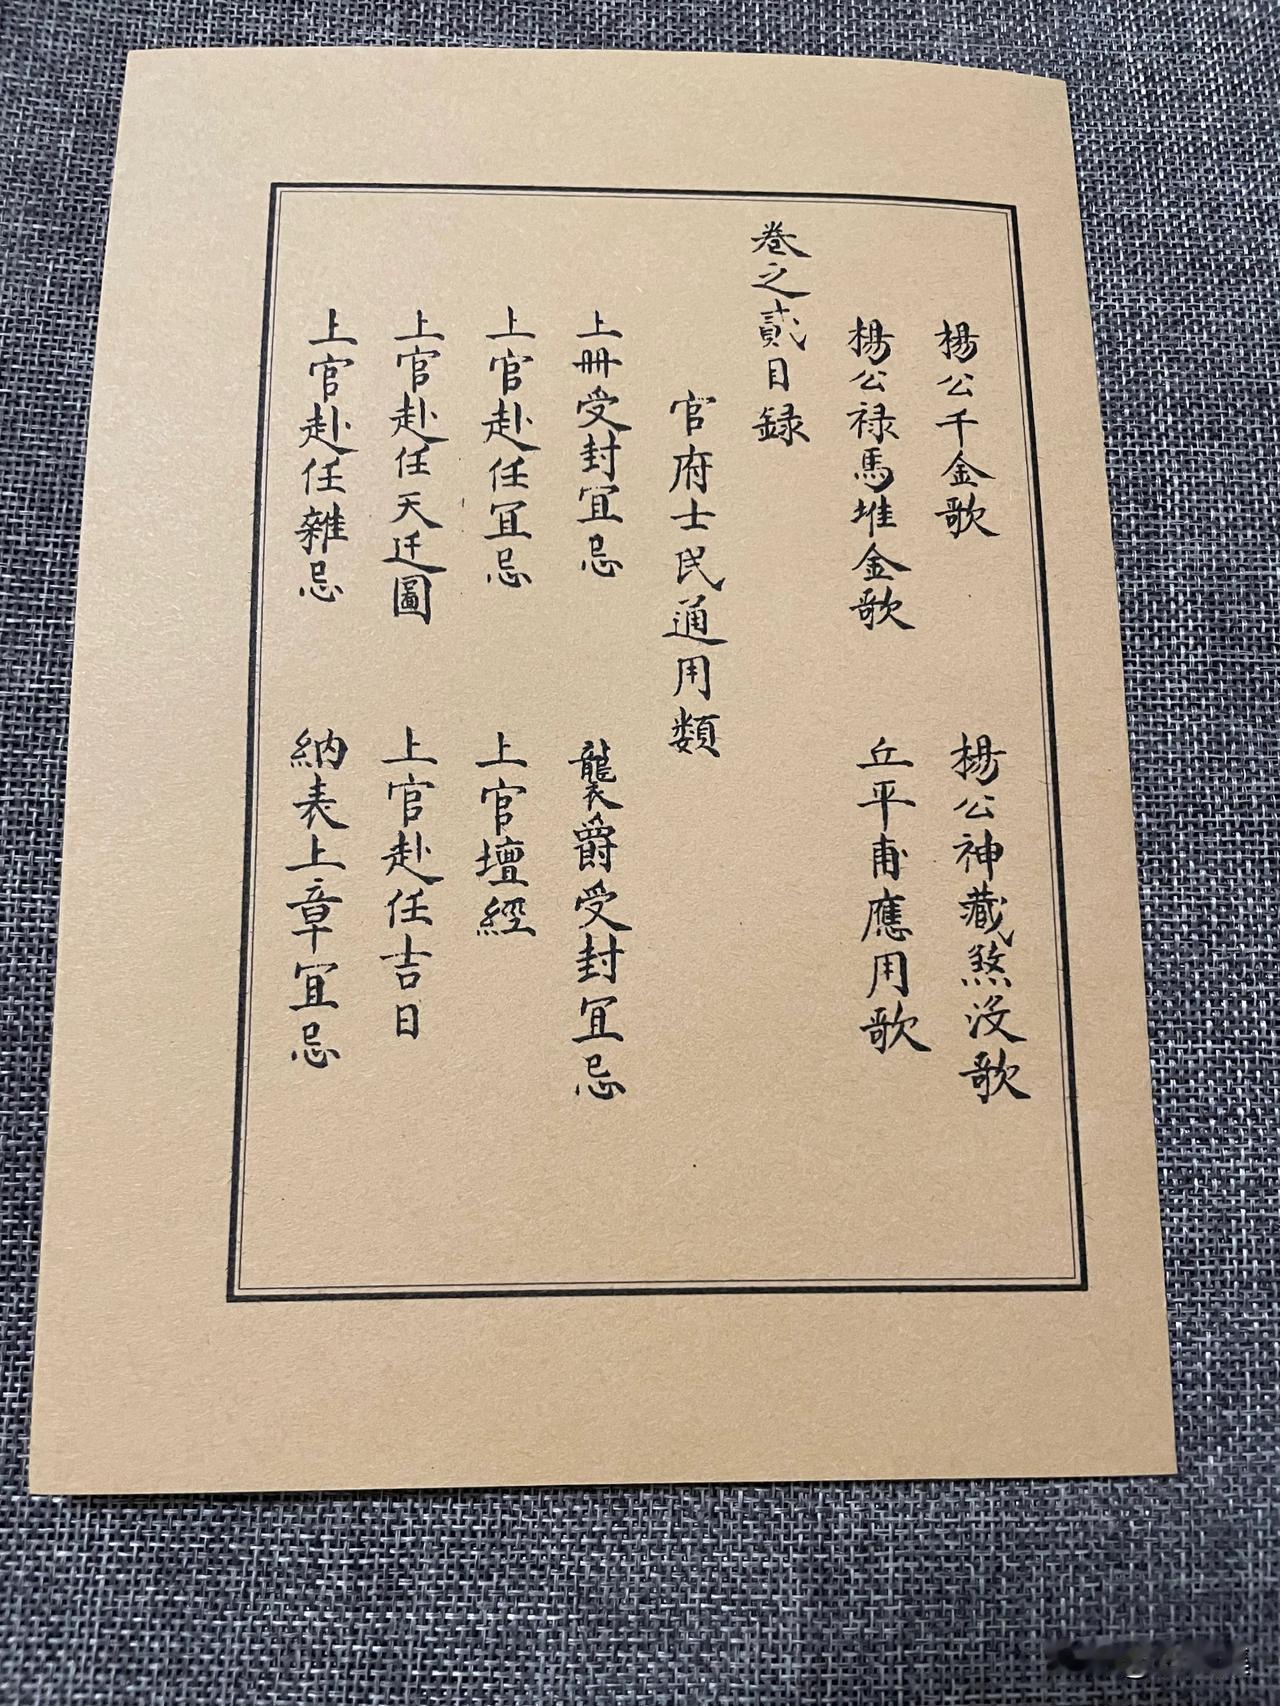 楊公千金歌　楊公神藏煞没歌
楊公禄馬堆金歌　丘平甫應用歌
卷之貳目録
官府士民通用類
上冊受封宜忌　襲爵受封宜忌
上官赴任宜忌　上官壇經
上官赴任天迁圖　上官赴任吉日
上官赴任雜忌　納表上章宜忌